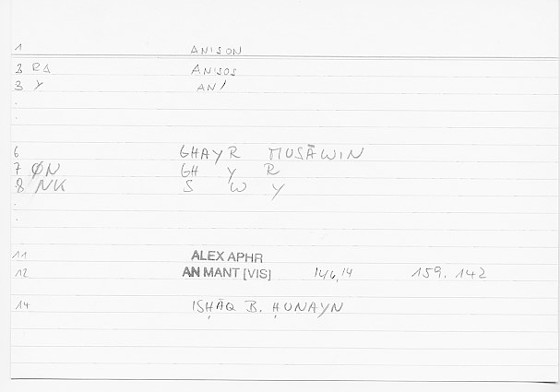 1 ANISON
2 RA ANISOS
3 Y ANI
6 GHAYR MUSĀWIN
7 ØN GH Y R
8 NK S W Y
11 ALEX APHR
12 AN MANT [VIS] 146,14 159.142
14 ISḤĀQ B. ḤUNAYN